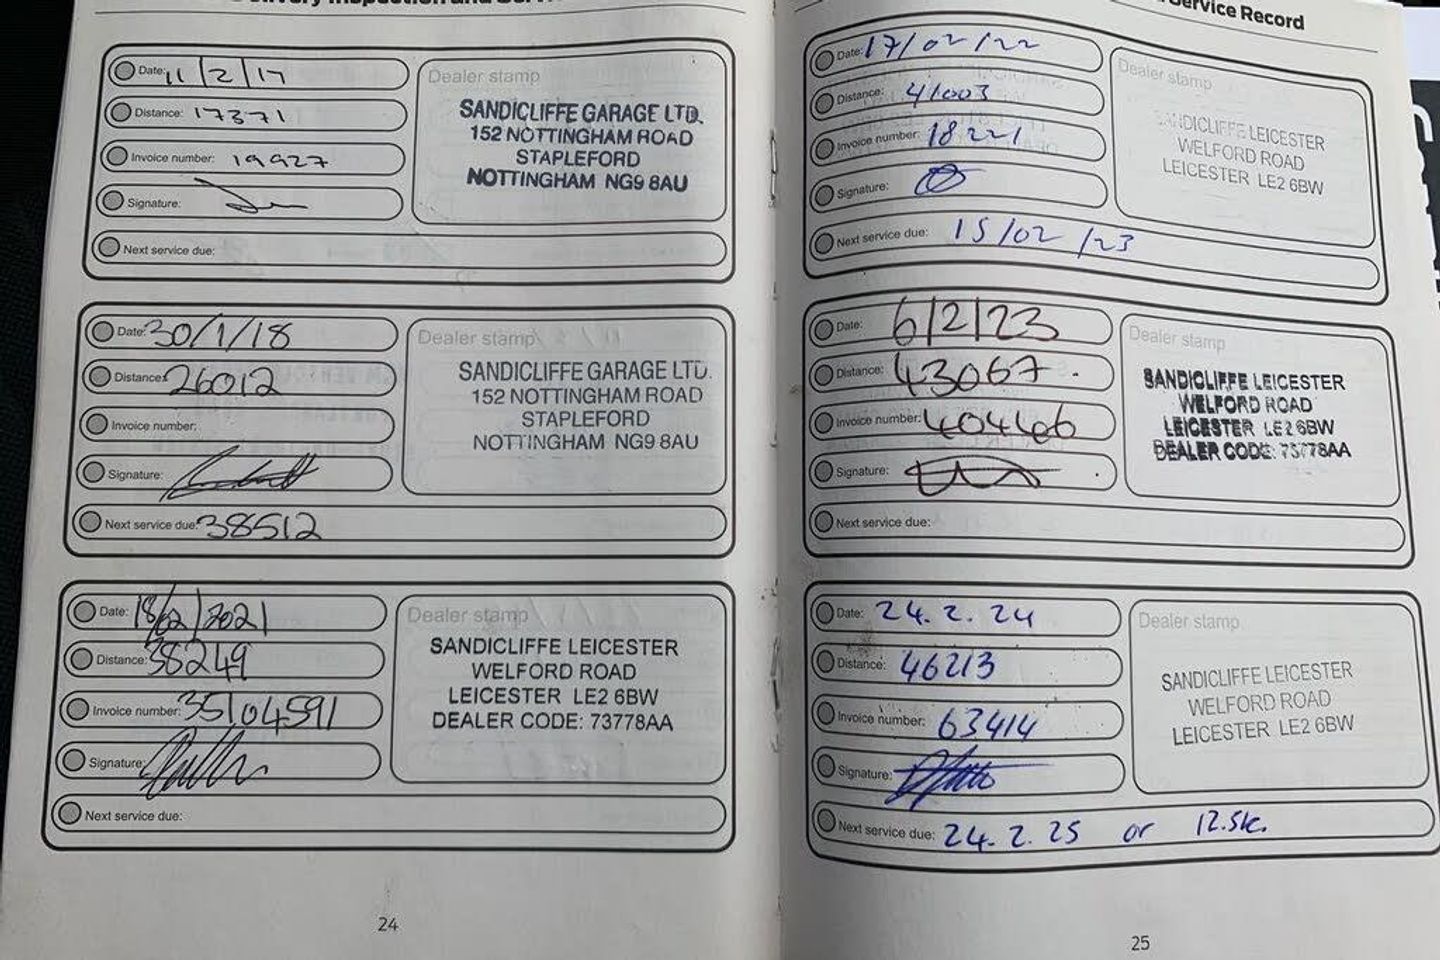 Service Record
Date: 11/2/17
Distance: 17371
Invoice number: 19927
Signature:
Next service due:
Dealer stamp
SANDICLIFFE GARAGE LTD.
152 NOTTINGHAM ROAD
STAPLEFORD
NOTTINGHAM NG9 8AU
Date: 30/1/18
Distance: 26012
Invoice number:
Signature:
Next service due: 38512
Dealer stamp
SANDICLIFFE GARAGE LTD.
152 NOTTINGHAM ROAD
STAPLEFORD
NOTTINGHAM NG9 8AU
Date: 18/02/2021
Distance: 38249
Invoice number: 35104591
Signature:
Next service due:
Dealer stamp
SANDICLIFFE LEICESTER
WELFORD ROAD
LEICESTER LE2 6BW
DEALER CODE: 73778AA
24
Date: 17/02/22
Distance: 41003
Invoice number: 18221
Signature:
Next service due: 15/02/23
Dealer stamp
SANDICLIFFE LEICESTER
WELFORD ROAD
LEICESTER LE2 6BW
Date: 6/2/23
Distance: 43067
Invoice number: 404466
Signature:
Next service due:
Dealer stamp
SANDICLIFFE LEICESTER
WELFORD ROAD
LEICESTER LE2 6BW
DEALER CODE: 73778AA
Date: 24.2.24
Distance: 46213
Invoice number: 63414
Signature:
Next service due: 24.2.25 or 12.5k.
Dealer stamp
SANDICLIFFE LEICESTER
WELFORD ROAD
LEICESTER LE2 6BW
25